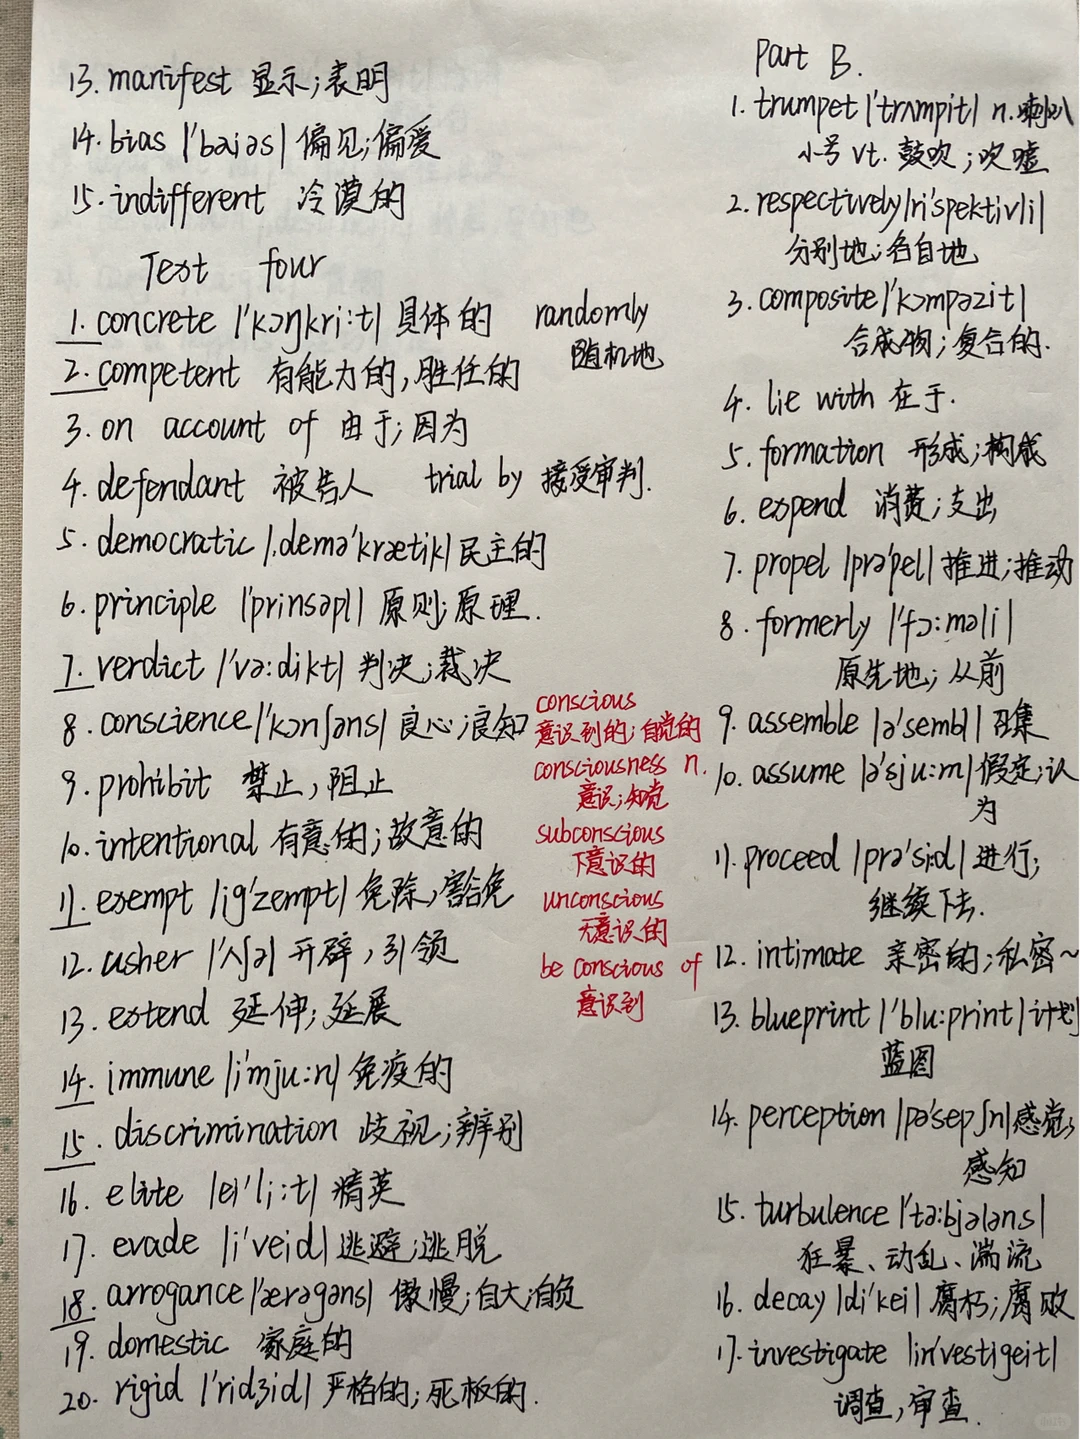 13. manifest 显示;表明
14. bias |'baiəs| 偏见;偏爱
15. indifferent 冷漠的
Text four
1. concrete |'kɔŋkri:t| 具体的 randomly
随机地
2. competent 有能力的,胜任的
3. on account of 由于;因为
4. defendant 被告人 trial by 接受审判.
5. democratic |,demə'krætik| 民主的
6. principle |'prinsəpl| 原则;原理.
7. verdict |'və:dikt| 判决;裁决
8. conscience |'kɔnʃəns| 良心;良知
conscious
意识到的;自觉的
consciousness n.
意识;知觉
subconscious
下意识的
unconscious
无意识的
be conscious of
意识到
9. prohibit 禁止,阻止
10. intentional 有意的;故意的
11. exempt |ig'zempt| 免除,豁免
12. usher |'ʌʃə| 开辟,引领
13. extend 延伸;延展
14. immune |i'mju:n| 免疫的
15. discrimination 歧视;辨别
16. elite |ei'li:t| 精英
17. evade |i'veid| 逃避;逃脱
18. arrogance |'ærəgəns| 傲慢;自大;自负
19. domestic 家庭的
20. rigid |'ridʒid| 严格的;死板的.
Part B.
1. trumpet |'trʌmpit| n. 喇叭
小号 vt. 鼓吹;吹嘘
2. respectively |ri'spektivli|
分别地;各自地
3. composite |'kɔmpəzit|
合成物;复合的.
4. lie with 在于.
5. formation 形成;构成
6. expend 消费;支出
7. propel |prə'pel| 推进;推动
8. formerly |'fɔ:məli|
原先地;从前
9. assemble |ə'sembl| 召集
10. assume |ə'sju:m| 假定;认
为
11. proceed |prə'si:d| 进行;
继续下去.
12. intimate 亲密的;私密~
13. blueprint |'blu:print| 计划
蓝图
14. perception |pə'sepʃn| 感觉;
感知
15. turbulence |'tə:bjələns|
狂暴、动乱、湍流
16. decay |di'kei| 腐朽;腐败
17. investigate |in'vestigeit|
调查,审查.